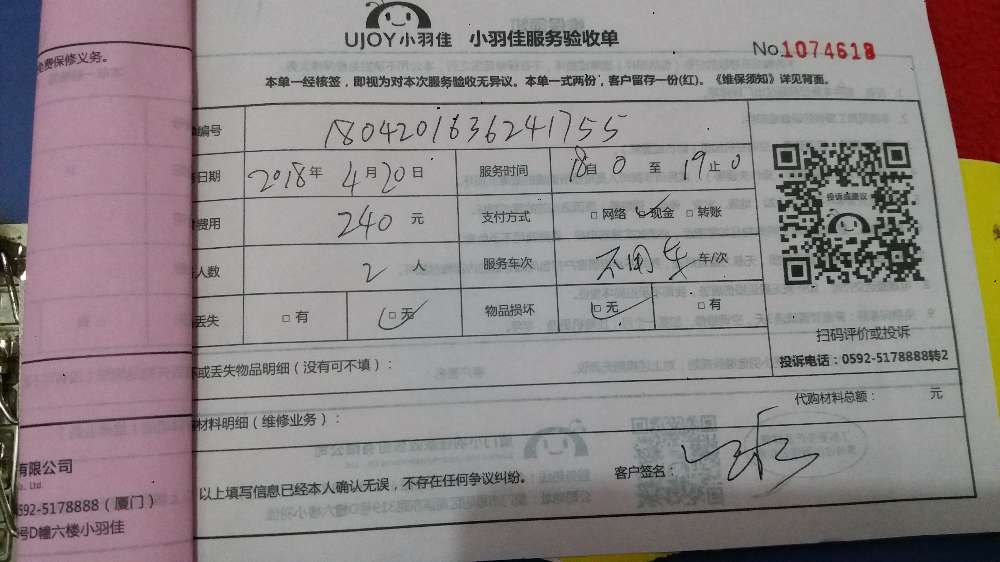 UJOY小羽佳 小羽佳服务验收单
No.1074618
本单一经核签，即视为对本次服务验收无异议。本单一式两份，客户留存一份(红)。《维保须知》详见背面。
免费保修义务。
编号 1804201636241755
日期 2018年4月20日 服务时间 18自0至19止0
费用 240元 支付方式 □网络 ☑现金 □转账
人数 2人 服务车次 不用车 车/次
丢失 □有 ☑无 物品损坏 ☑无 □有
投诉或建议
扫码评价或投诉
投诉电话：0592-5178888转2
或丢失物品明细（没有可不填）：
材料明细（维修业务）：
代购材料总额： 元
以上填写信息已经本人确认无误，不存在任何争议纠纷。
客户签名：
有限公司
Ltd.
592-5178888（厦门）
号D幢六楼小羽佳